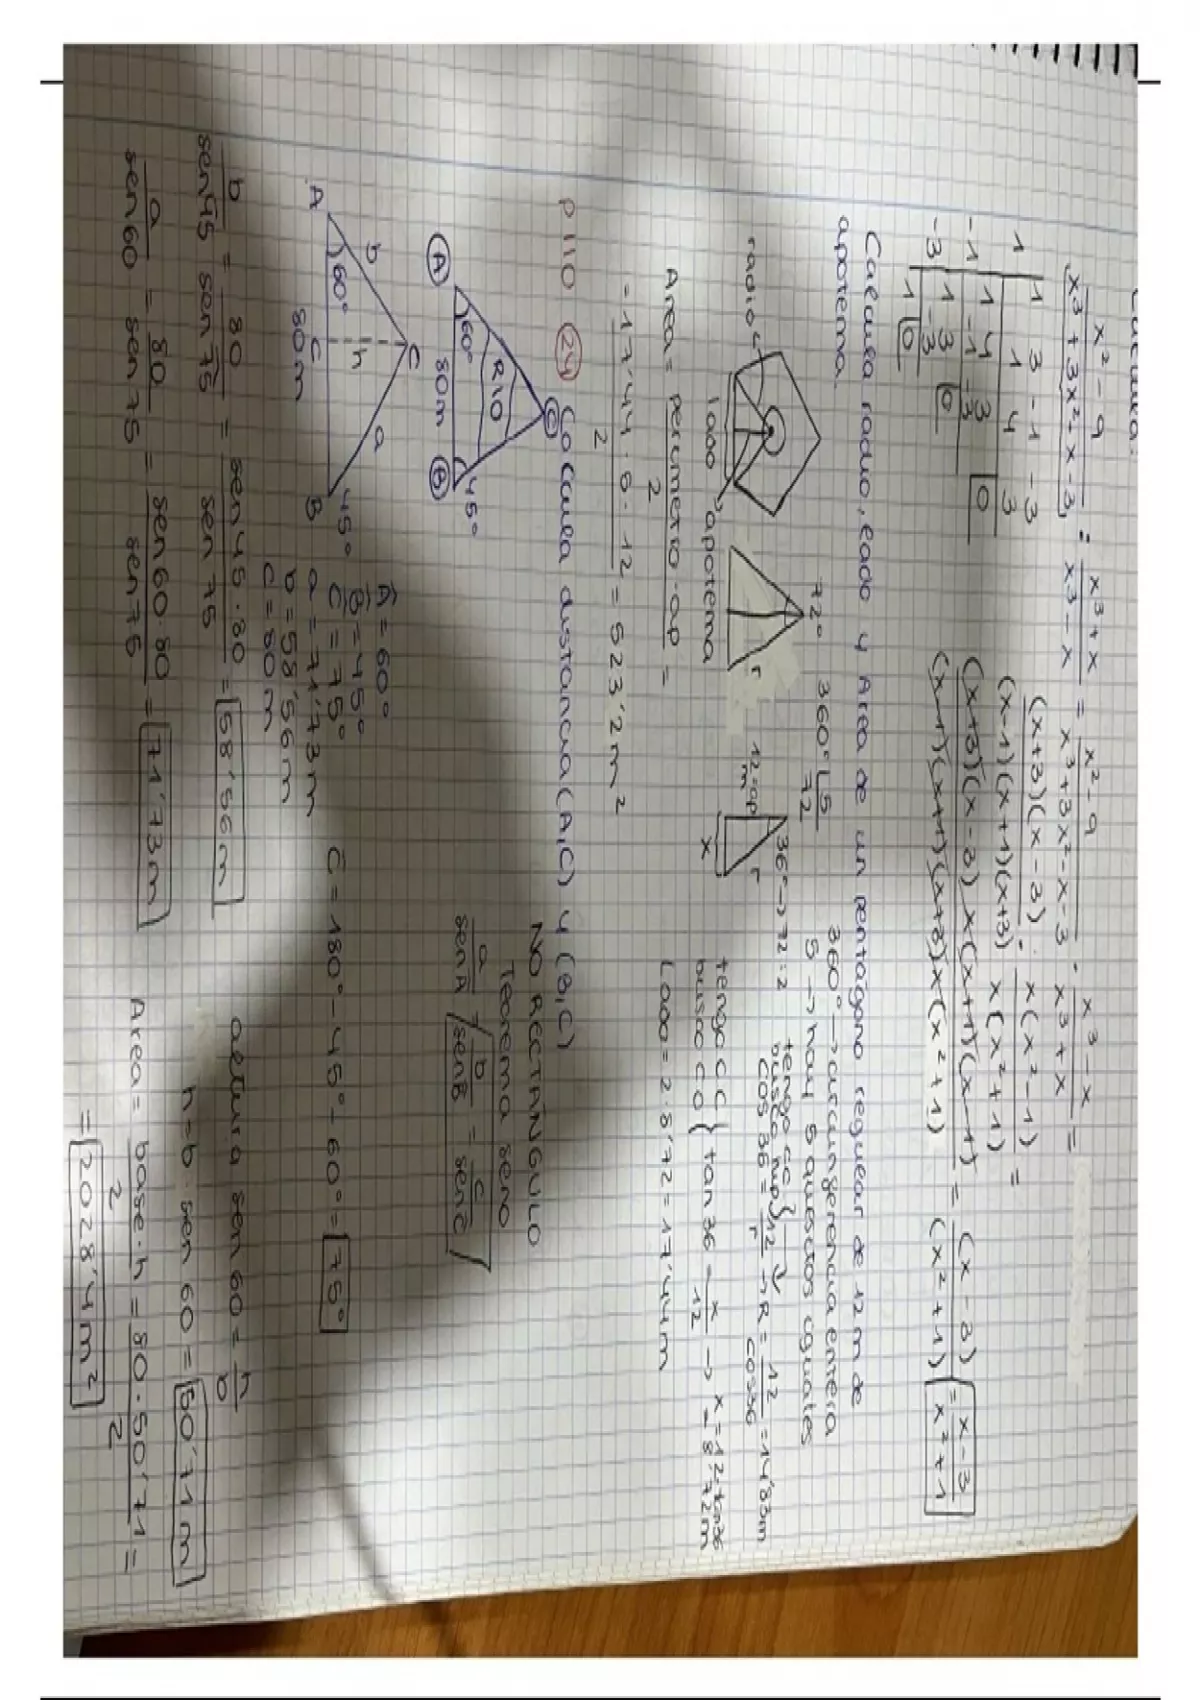 Calcula:
x² - 9 / x³ + 3x² - x - 3 : x³ + x / x³ - x = x² - 9 / x³ + 3x² - x - 3 · x³ - x / x³ + x =
1 3 -1 -3
1 1 4 3
1 4 3 0
-1 -1 -3
1 3 0
-3 -3
1 0
(x+3)(x-3) / (x-1)(x+1)(x+3) · x(x²-1) / x(x²+1) =
(x+3)(x-3) x(x+1)(x-1) / (x-1)(x+1)(x+3) x(x²+1) = (x-3) / (x²+1) = x-3 / x²+1
Calcula radio, lado y Area de un pentagono regular de 12m de
apotema.
radio
lado
apotema
72°
r
360° 5
72
360° → circungerencia entera
5 → hay 5 quesitos iguales
12=ap
m
x
r
36° → 72:2
tengo cc
busco hip
cos 36 = 12/r → R = 12 / cos36 = 14'83m
tengo CC
busco CO
tan 36 = x/12 → x = 12·tan36
= 8'72m
Lado = 2·8'72 = 17'44m
Area = perimetro·ap / 2 =
= 17'44·6·12 / 2 = 523'2m²
P110 24 Calcula distancia (A,C) y (B,C)
C
RIO
60°
45°
80m
A
B
NO RECTANGULO
Teorema seno
a / senA = b / senB = c / senC
A
b
60°
C
h
a
c
80m
B
45°
Â = 60°
B̂ = 45°
Ĉ = 75°
a = 71'73m
b = 58'56m
c = 80m
Ĉ = 180° - 45° - 60° = 75°
b / sen45 = 80 / sen75 = sen45·80 / sen 75 = 58'56m
a / sen60 = 80 / sen 75 = sen60·80 / sen75 = 71'73m
altura sen 60 = h / b
h = b · sen 60 = 50'71m
Area = base·h / 2 = 80·50'71 / 2 =
= 2028'4m²